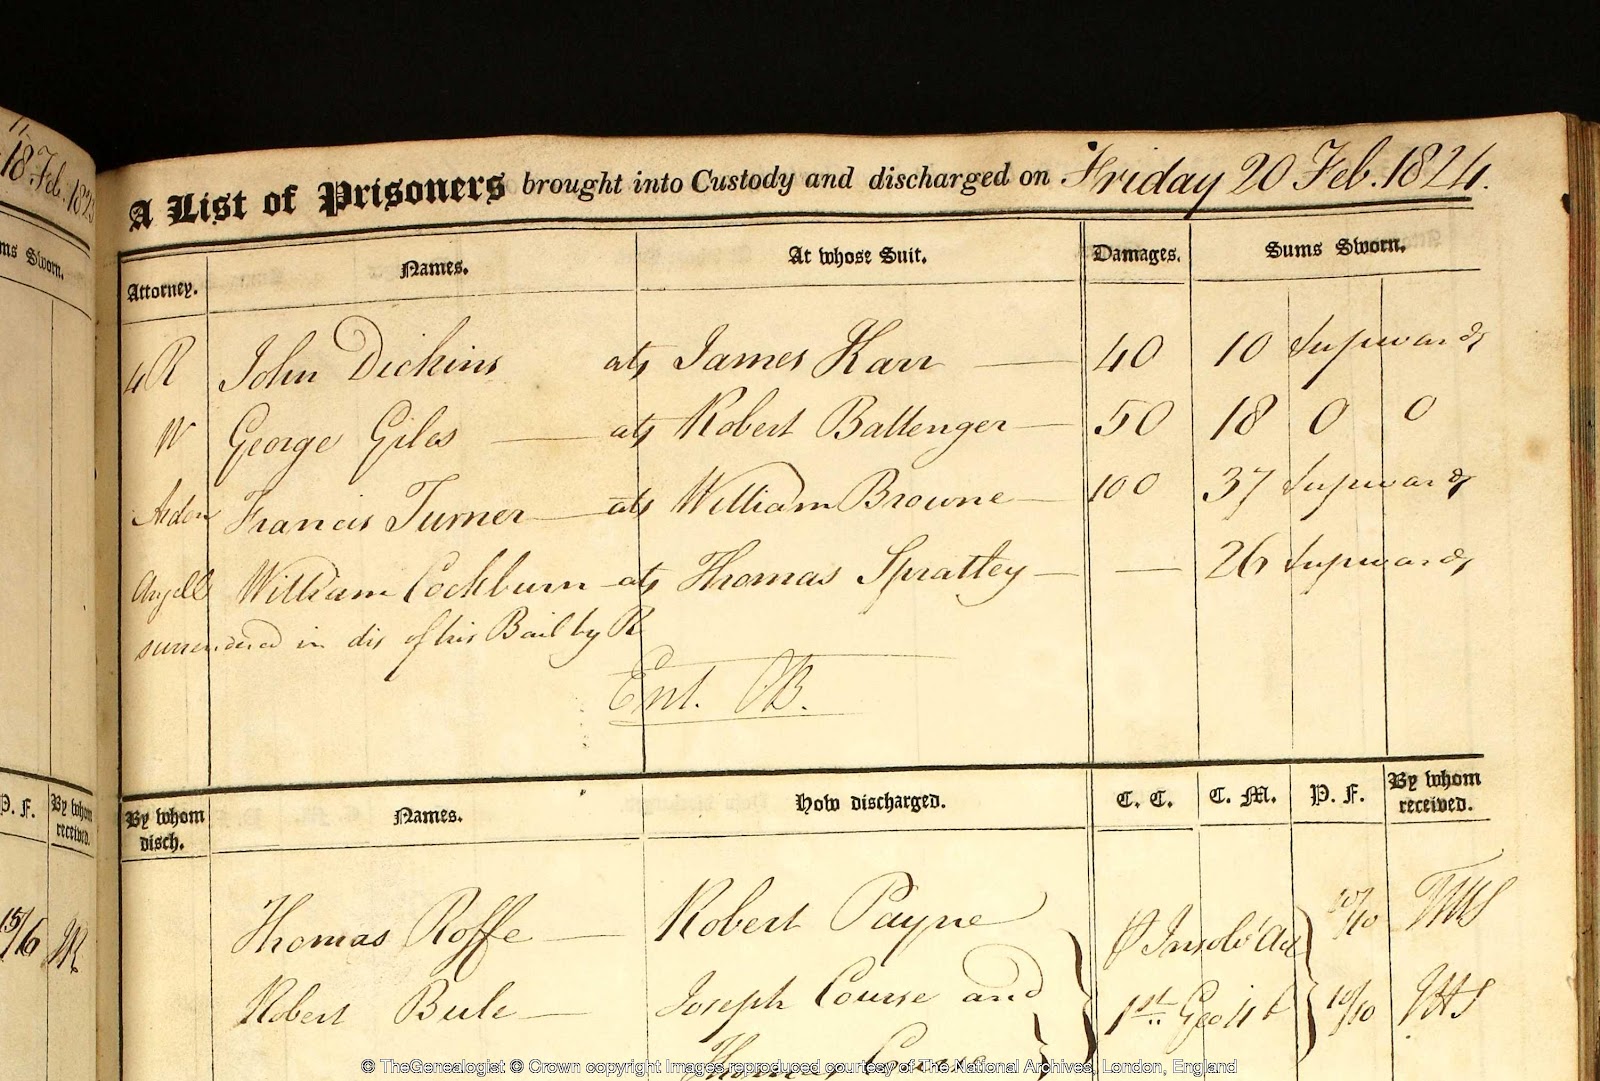 18 Feb. 182
ms Sworn.
A List of Prisoners brought into Custody and discharged on Friday 20 Feb. 1824.
Attorney. Names. At whose Suit. Damages. Sums Sworn.
4 R John Dickins ats James Karr 40 10 & upwards
W George Giles ats Robert Battenger 50 18 0 0
Arden Francis Turner ats William Browne 100 37 & upwards
Argell William Cockburn ats Thomas Spratley 26 & upwards
surrendered in dis of his Bail by R
Ent. B.
P. F. By whom received.
By whom disch. Names. How discharged. C. C. C. M. P. F. By whom received.
15/6
Thomas Roffe Robert Payne Insolv Act 10/10
Robert Bule Joseph Course and 1st Geo 4th 10/10
Thomas
© TheGenealogist © Crown copyright Images reproduced courtesy of The National Archives, London, England